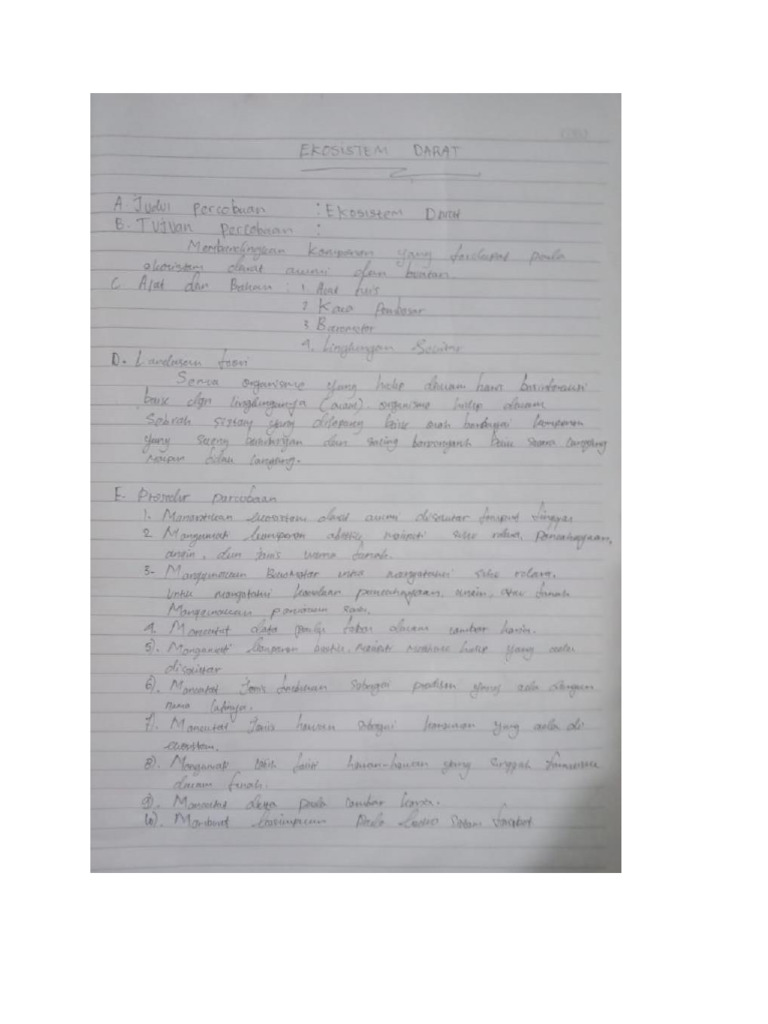 EKOSISTEM DARAT
A. Judul percobaan : Ekosistem Darat
B. Tujuan percobaan :
Membandingkan komponen yang terdapat pada
ekosistem darat alami dan buatan.
C. Alat dan Bahan : 1. Alat tulis
2 Kaca Pembesar
3 Barometer
4. Lingkungan Sekitar
D. Landasan teori
Semua organisme yang hidup dalam harus berinteraksi
baik dgn lingkungannya (alam). organisme hidup dalam
Sebuah sistem yang ditopang baik oleh berbagai komponen
yang saling berhubungan dan saling berpengaruh baik secara langsung
maupun tidak langsung.
E. Prosedur percobaan
1. Menentukan ekosistem darat alami disekitar tempat tinggal
2. Mengamati komponen abiotik, meliputi suhu udara, pencahayaan,
angin, dan jenis warna tanah.
3. Menggunakan Barometer untuk mengetahui suhu
untuk mengetahui keadaan pencahayaan, angin, tanah
Menggunakan
4. Mencatat data pada tabel dalam lembar kerja.
5). Mengamati komponen biotik, meliputi makhluk hidup yang ada
disekitar
6). Mencatat Jenis tumbuhan sebagai produsen yang ada dengan
nama latinya.
7). Mencatat Jenis hewan sebagai konsumen yang ada di
ekosistem.
8). Mengamati lebih teliti hewan-hewan yang singgah
dalam tanah.
9). Mencatat pada lembar kerja.
10). Membuat kesimpulan Pada